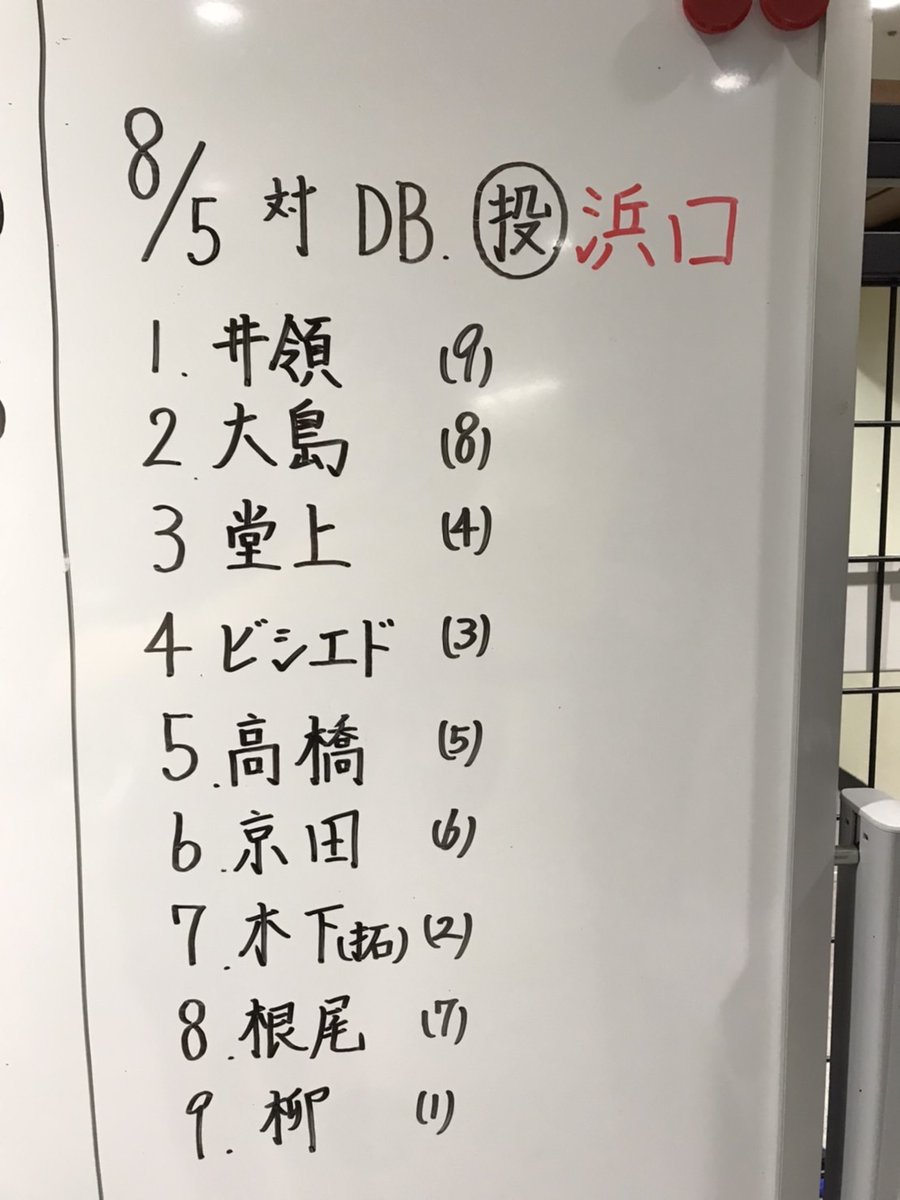 8/5 対 DB. 投 浜口
1. 井領 (9)
2 大島 (8)
3 堂上 (4)
4 ビシエド (3)
5. 高橋 (5)
6. 京田 (6)
7. 木下(拓) (2)
8. 根尾 (7)
9. 柳 (1)